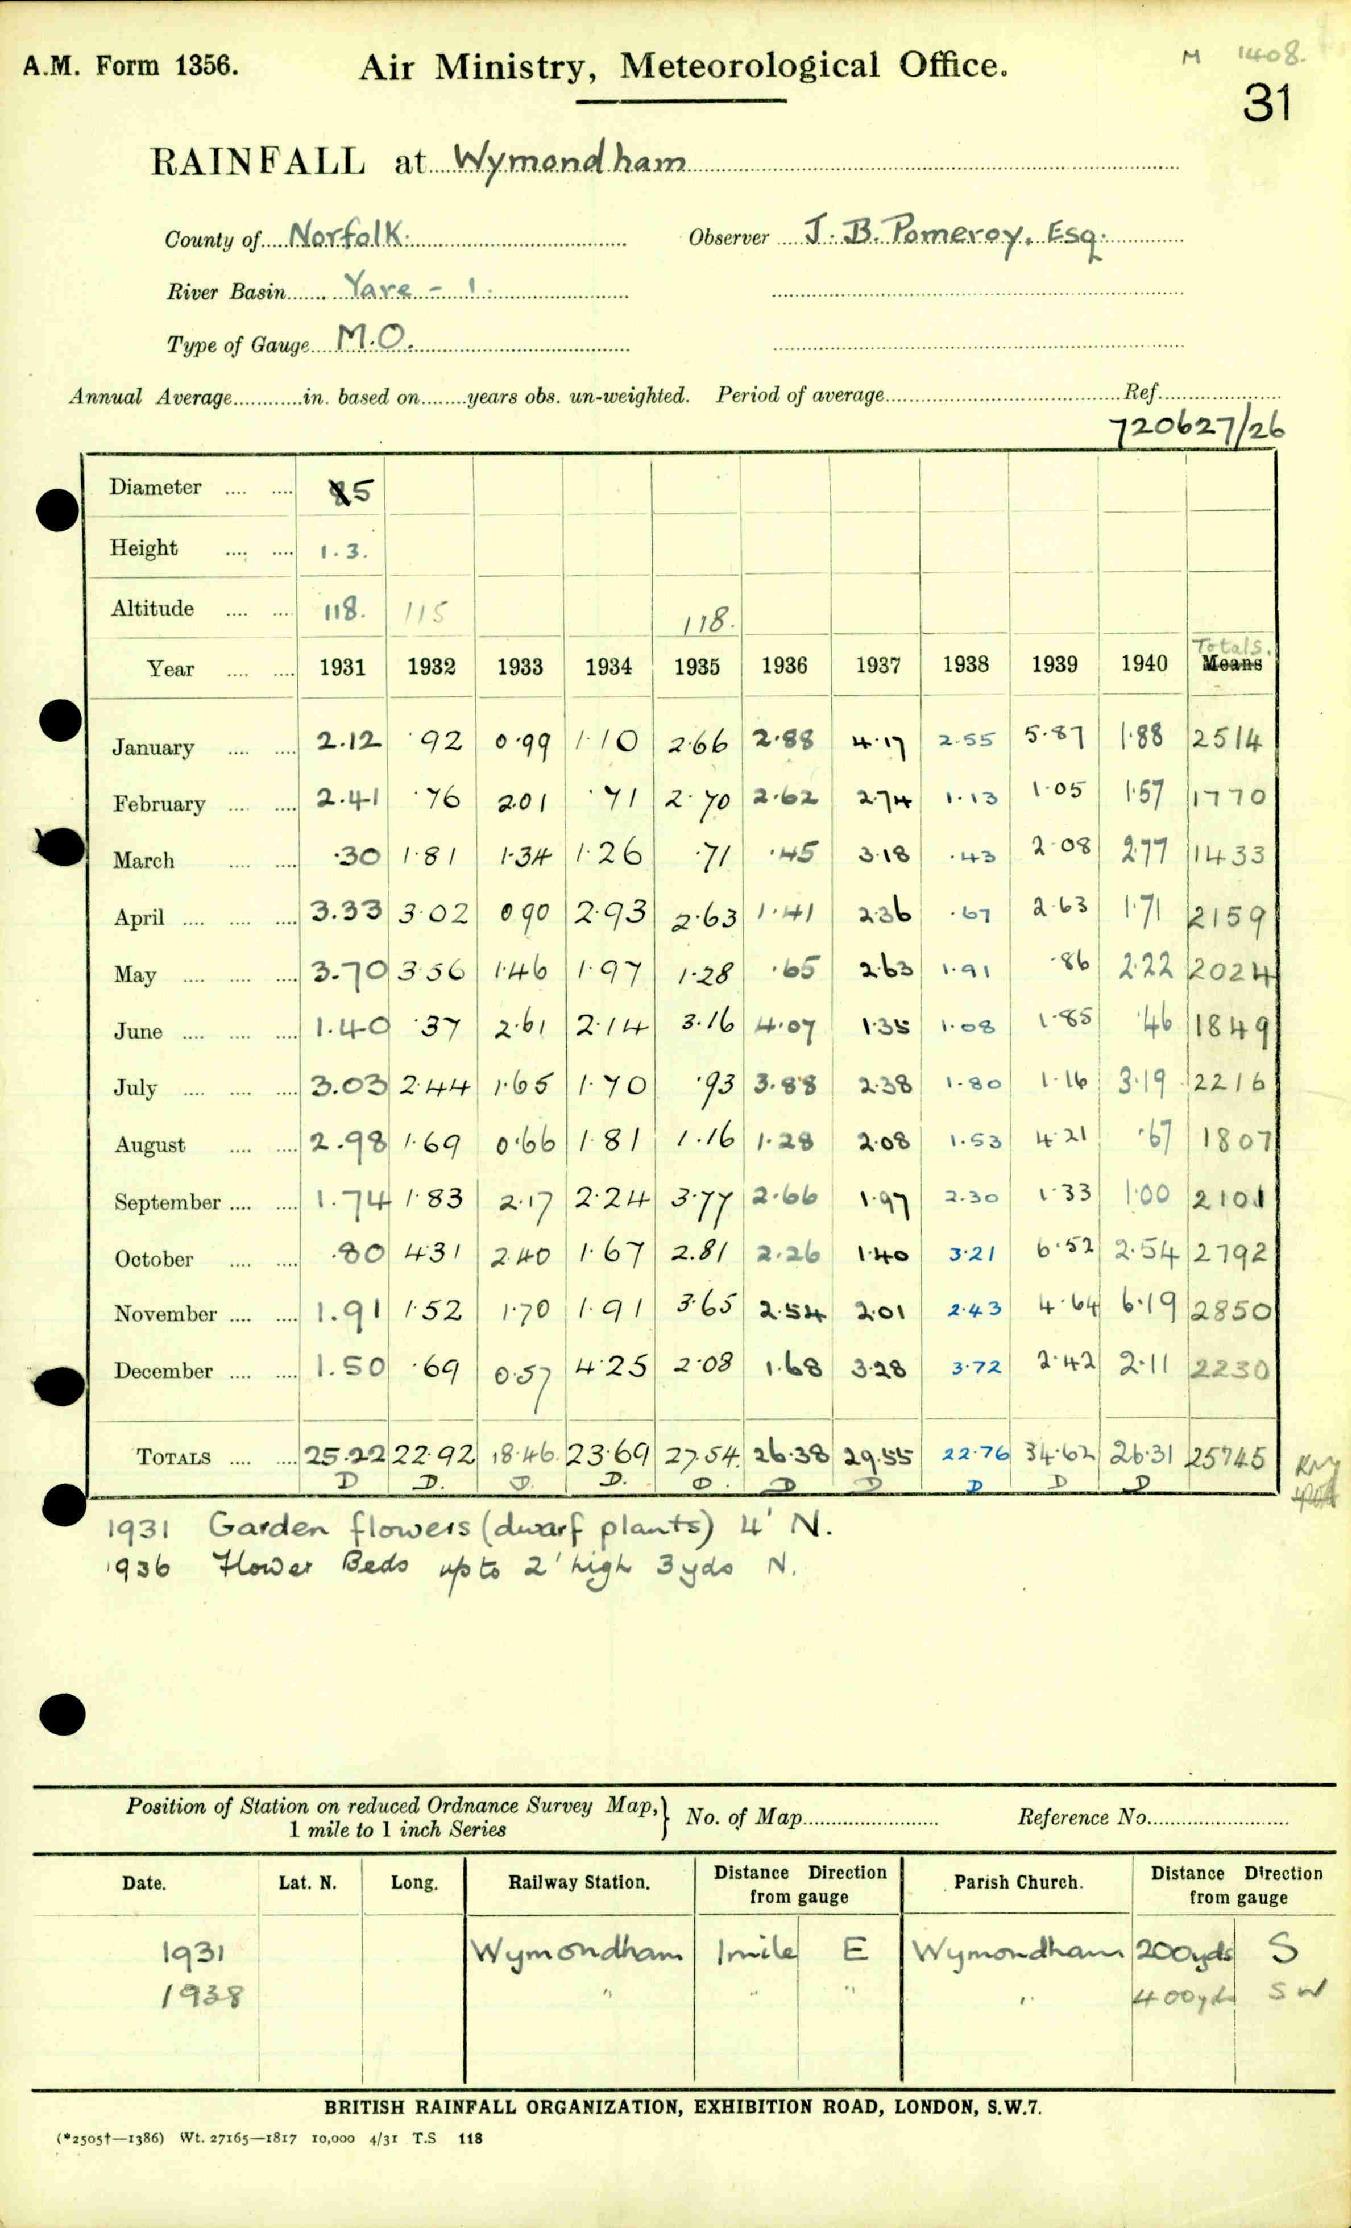 A.M. Form 1356. Air Ministry, Meteorological Office. M 1408.
31
RAINFALL at Wymondham
County of Norfolk. Observer J. B. Pomeroy, Esq.
River Basin Yare - 1.
Type of Gauge M.O.
Annual Average in. based on years obs. un-weighted. Period of average Ref.
720627/26
Diameter 5
Height 1.3.
Altitude 118. 115 118.
Totals.
Year 1931 1932 1933 1934 1935 1936 1937 1938 1939 1940 Means
January 2.12 .92 0.99 1.10 2.66 2.88 4.17 2.55 5.87 1.88 2514
February 2.41 .76 2.01 .71 2.70 2.62 2.74 1.13 1.05 1.57 1770
March .30 1.81 1.34 1.26 .71 .45 3.18 .43 2.08 2.77 1433
April 3.33 3.02 0.90 2.93 2.63 1.41 2.36 .67 2.63 1.71 2159
May 3.70 3.56 1.46 1.97 1.28 .65 2.63 1.91 .86 2.22 2024
June 1.40 .37 2.61 2.14 3.16 4.07 1.35 1.08 1.85 .46 1849
July 3.03 2.44 1.65 1.70 .93 3.88 2.38 1.80 1.16 3.19 2216
August 2.98 1.69 0.66 1.81 1.16 1.28 2.08 1.53 4.21 .67 1807
September 1.74 1.83 2.17 2.24 3.77 2.66 1.97 2.30 1.33 1.00 2101
October .80 4.31 2.40 1.67 2.81 2.26 1.40 3.21 6.52 2.54 2792
November 1.91 1.52 1.70 1.91 3.65 2.54 2.01 2.43 4.64 6.19 2850
December 1.50 .69 0.57 4.25 2.08 1.68 3.28 3.72 2.42 2.11 2230
TOTALS 25.22 22.92 18.46 23.69 27.54 26.38 29.55 22.76 34.62 26.31 25745
D D. D. D. D. D D D D D
1931 Garden flowers (dwarf plants) 4' N.
1936 Flower Beds up to 2' high 3yds N.
Position of Station on reduced Ordnance Survey Map,} No. of Map Reference No.
1 mile to 1 inch Series
Date. Lat. N. Long. Railway Station. Distance Direction from gauge Parish Church. Distance Direction from gauge
1931 Wymondham 1mile E Wymondham 200yds S
1938 " " " " 400yds SW
BRITISH RAINFALL ORGANIZATION, EXHIBITION ROAD, LONDON, S.W.7.
(*2505†—1386) Wt. 27165—1817 10,000 4/31 T.S 118